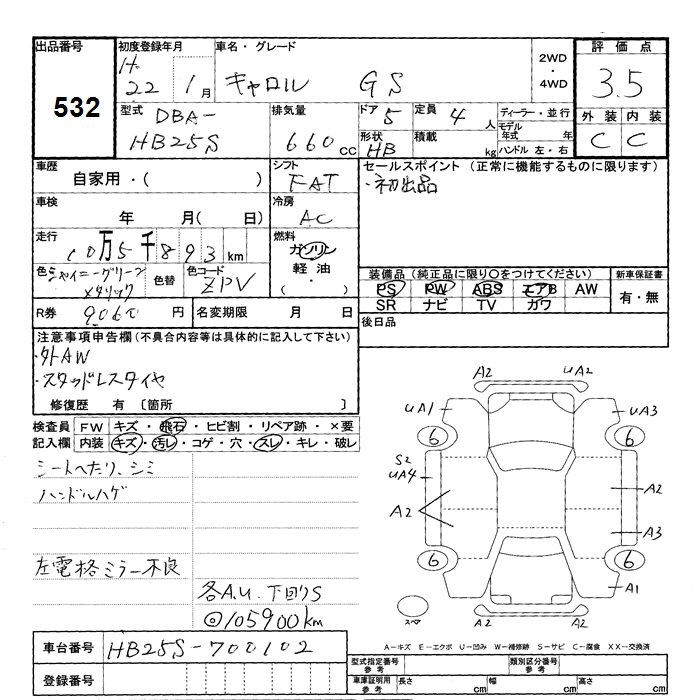 出品番号
532
初度登録年月
H
22 1月
車名・グレード
キャロル GS
2WD
・
4WD
評価点
3.5
外装 内装
C C
型式 DBA-
HB25S
排気量
660cc
ドア 5
形状 HB
定員 4人
積載 kg
ディーラー・並行
モデル年式 年
ハンドル 左・右
車歴
自家用・( )
シフト
FAT
セールスポイント (正常に機能するものに限ります)
・初出品
車検
年 月( 日)
冷房
AC
走行
10万5千893km
燃料
ガソリン
軽油
( ・ )
色 シャイニーグリーン
メタリック
色替
色コード
ZPV
装備品(純正品に限り○をつけてください)
PS PW ABS エアB AW
SR ナビ TV カワ
新車保証書
有・無
R券 9060円
名変期限 月 日
後日品
注意事項申告欄(不具合内容等は具体的に記入して下さい)
・外AW
・スタッドレスタイヤ
修復歴 有 〔箇所 〕
検査員
記入欄
FW キズ・飛石・ヒビ割・リペア跡・×要
内装 キズ・汚レ・コゲ・穴・スレ・キレ・破レ
シートヘたり、シミ
ハンドルハゲ
左電格ミラー不良
各A.U.下回りS
◎105900km
A2 UA2
UA1 UA3
6 6
S2
UA4
A2
A2
A3
6 6
A1
スペア
A2 A2
A-キズ E-エクボ U-凹み W-補修跡 S-サビ C-腐食 XX-交換済
車台番号 HB25S-700102
登録番号
型式指定番号
参考
類別区分番号
参考
車庫証明用
参考
長さ cm
幅 cm
高さ cm